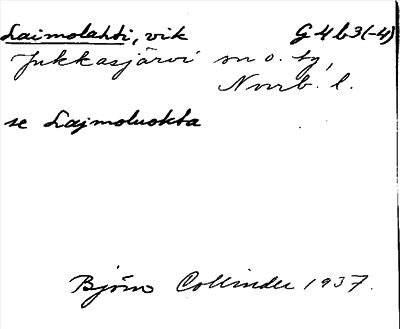 Laimolahti, vik G4b3(-4)
Jukkasjärvi sn o. tg,
Norrb. l.
se Lajmoluokta
Björn Collinder 1937.